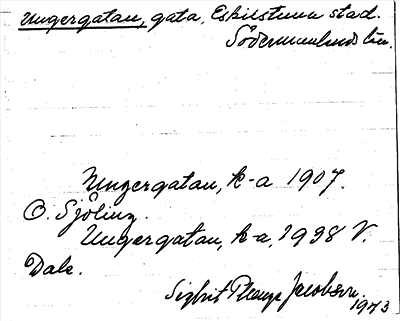 Ungergatan, gata, Eskilstuna stad.
Södermanlands län.
Ungergatan, k-a 1907.
O. Sjöling.
Ungergatan, k-a, 1938 V.
Dale.
Sigbrit Plaenge Jacobson.
1973